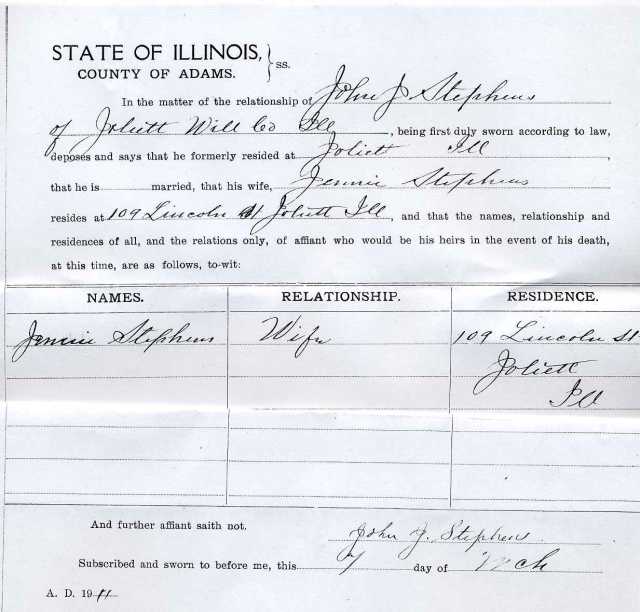 STATE OF ILLINOIS, } ss.
COUNTY OF ADAMS.
In the matter of the relationship of John J Stephens
of Joliett Will Co Ill, being first duly sworn according to law,
deposes and says that he formerly resided at Joliett Ill,
that he is married, that his wife, Jennie Stephens
resides at 109 Lincoln St Joliett Ill, and that the names, relationship and
residences of all, and the relations only, of affiant who would be his heirs in the event of his death,
at this time, are as follows, to-wit:
NAMES. RELATIONSHIP. RESIDENCE.
Jennie Stephens Wife 109 Lincoln St
Joliett
Ill
And further affiant saith not.
John J. Stephens
Subscribed and sworn to before me, this 7 day of Mch
A. D. 1911